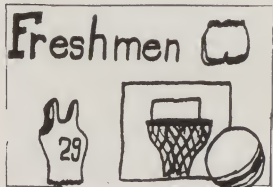 Freshmen
29